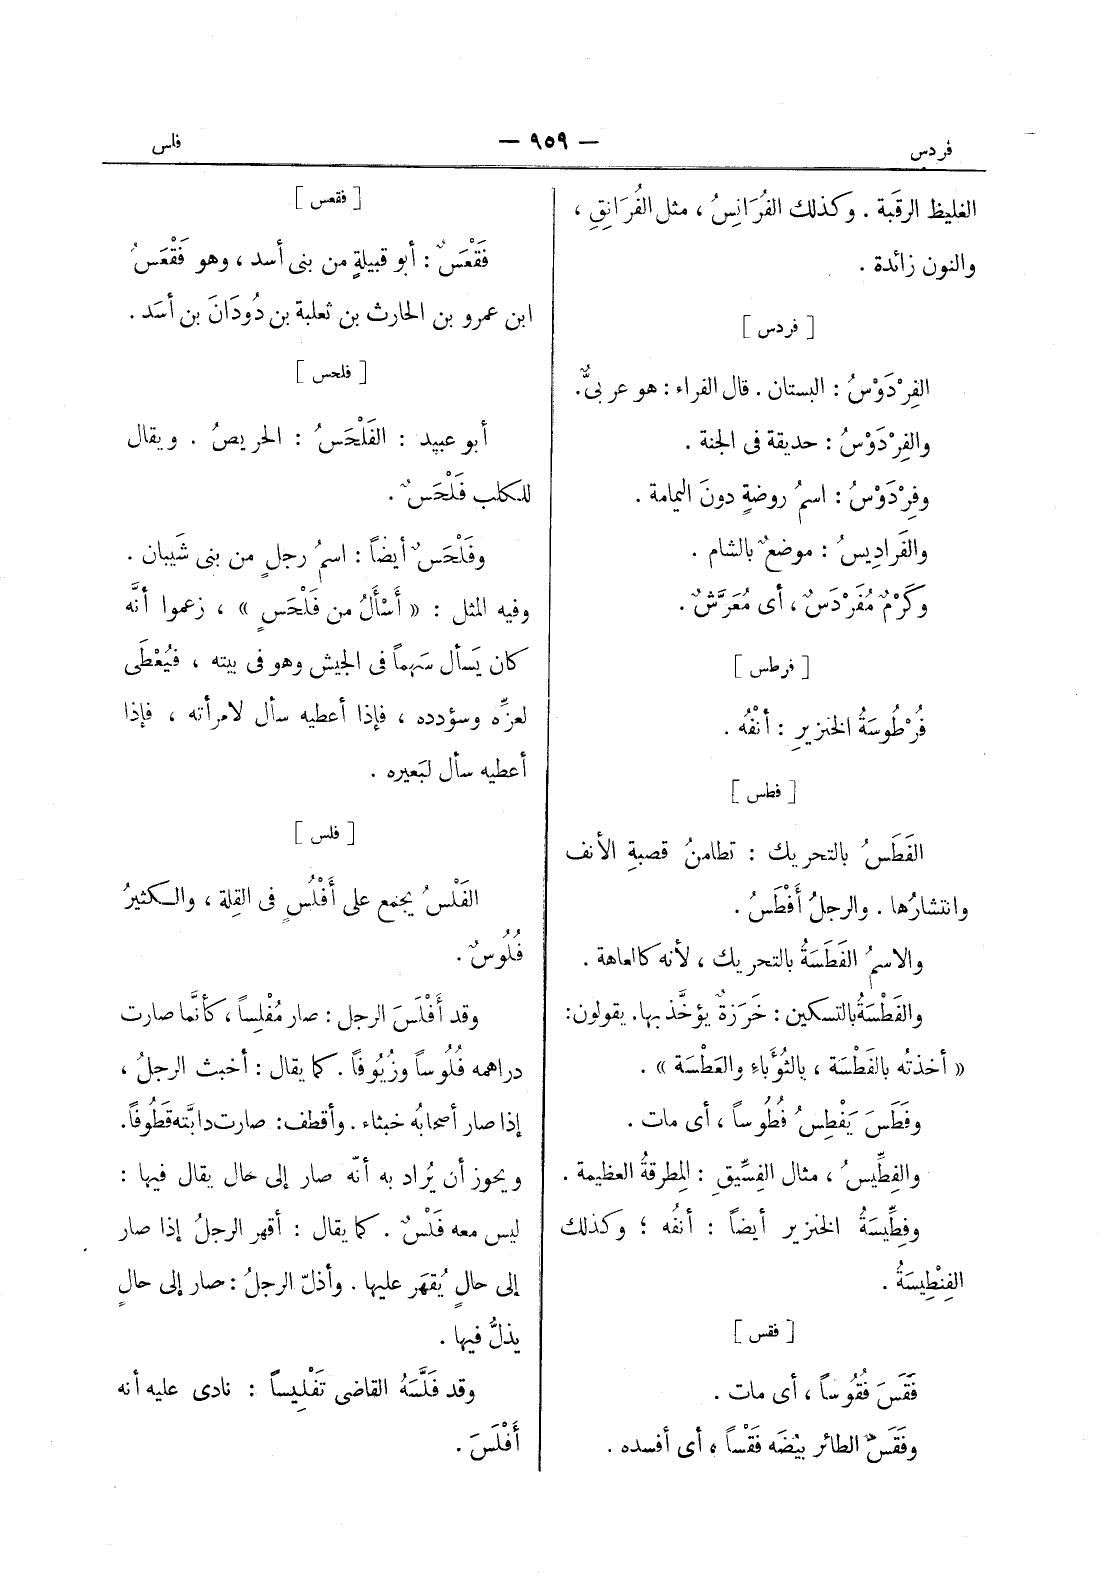 فردس
— ٩٥٩ —
فلس
الغليظ الرقَبة . وكذلك الفُرَانِسُ ، مثل الفُرَانِقِ ،
والنون زائدة .
[ فردس ]
الفِرْدَوْسُ : البستان . قال الفراء : هو عربىٌّ.
والفِرْدَوْسُ : حديقة فى الجنة .
وفِرْدَوْسُ : اسمُ روضةٍ دونَ اليمامة .
والفَرادِيسُ : موضعٌ بالشام .
وكَرْمٌ مُفَرْدَسٌ ، أى مُعَرَّشٌ .
[ فرطس ]
فُرْطُوسَةُ الخنزيرِ : أنْفُه .
[ فطس ]
الفَطَسُ بالتحريك : تطامنُ قصبةِ الأنف
وانتشارُها . والرجلُ أَفْطَسُ .
والاسمُ الفَطَسَةُ بالتحريك ، لأنه كالعاهة .
والفَطْسَةُ بالتسكين : خَرَزةٌ يؤخَّذ بها. يقولون:
« أخذتُه بالفَطْسَة ، بالثُوَّباءِ والعَطْسَة » .
وفَطَسَ يَفْطِسُ فُطُوساً ، أى مات .
والفِطِّيسُ ، مثال الفِسِّيقِ : المِطرقةُ العظيمة .
وفِطِّيسَةُ الخنزير أيضاً : أنفُه ؛ وكذلك
الفِنْطِيسَةُ .
[ فقس ]
فَقَسَ فُقُوساً ، أى مات .
وفَقَسَ الطائر بيْضَه فَقْساً ، أى أفسده .
[ فقعس ]
فَقْعَسٌ : أبو قبيلةٍ من بنى أسد ، وهو فَقْعَسُ
ابن عمرو بن الحارث بن ثعلبة بن دُودَانَ بن أسَد .
[ فلحس ]
أبو عبيد : الفَلْحَسُ : الحريصُ . ويقال
للكلب فَلْحَسٌ .
وفَلْحَسٌ أيضاً : اسمُ رجلٍ من بنى شَيبان .
وفيه المثل : « أَسْأَلُ من فَلْحَسٍ » ، زعموا أنَّه
كان يَسأل سَهماً فى الجيش وهو فى بيته ، فيُعْطَى
لعزِّه وسؤدده ، فإذا أعطيه سأل لامرأته ، فإذا
أعطيه سأل لبَعيره .
[ فلس ]
الفَلْسُ يجمَع على أَفْلُسٍ فى القِلة ، والكثيرُ
فُلُوسٌ .
وقد أَفْلَسَ الرجل : صار مُفْلِساً ، كأنَّما صارت
دراهمه فُلُوساً وزُيُوفاً . كما يقال : أخبث الرجلُ ،
إذا صار أصحابُه خبثاء . وأقطف: صارت دابَّته قَطُوفاً.
ويجوز أن يُراد به أنّه صار إلى حال يقال فيها :
ليس معه فَلْسٌ . كما يقال : أقهر الرجلُ إذا صار
إلى حالٍ يُقهَر عليها . وأذلّ الرجلُ : صار إلى حالٍ
يذلُّ فيها .
وقد فَلَّسَهُ القاضى تَفْلِيساً : نادى عليه أنه
أَفْلَسَ .